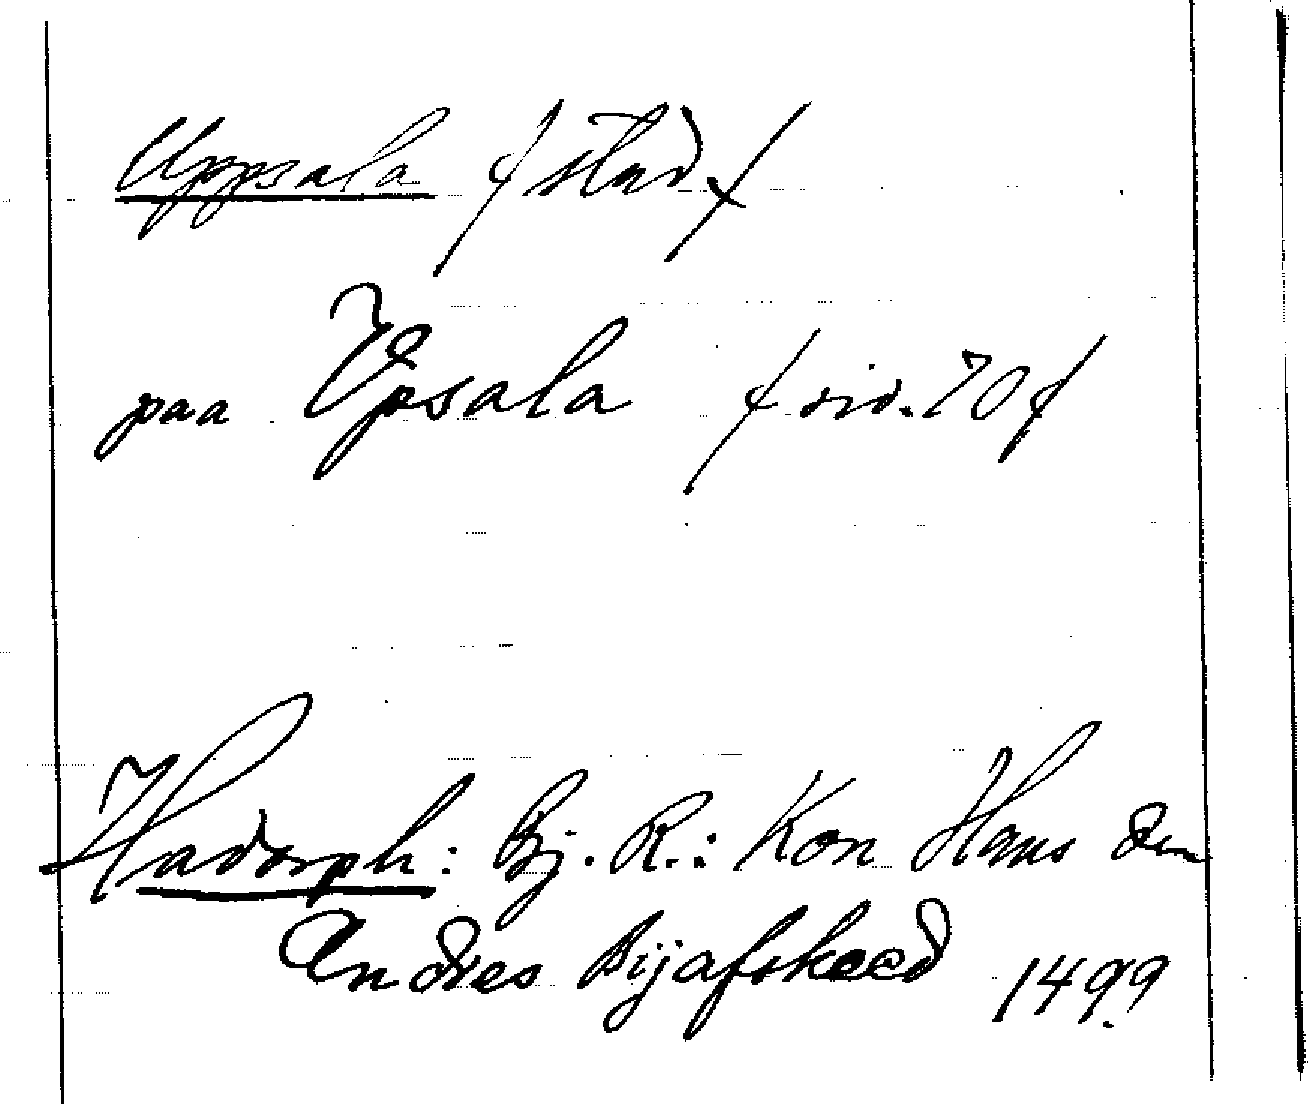 Uppsala / stad /
paa Upsala / sid. 70 /
Hadorph: Bj. R.: Kon Hans den
Andres Bijafskeed 1499